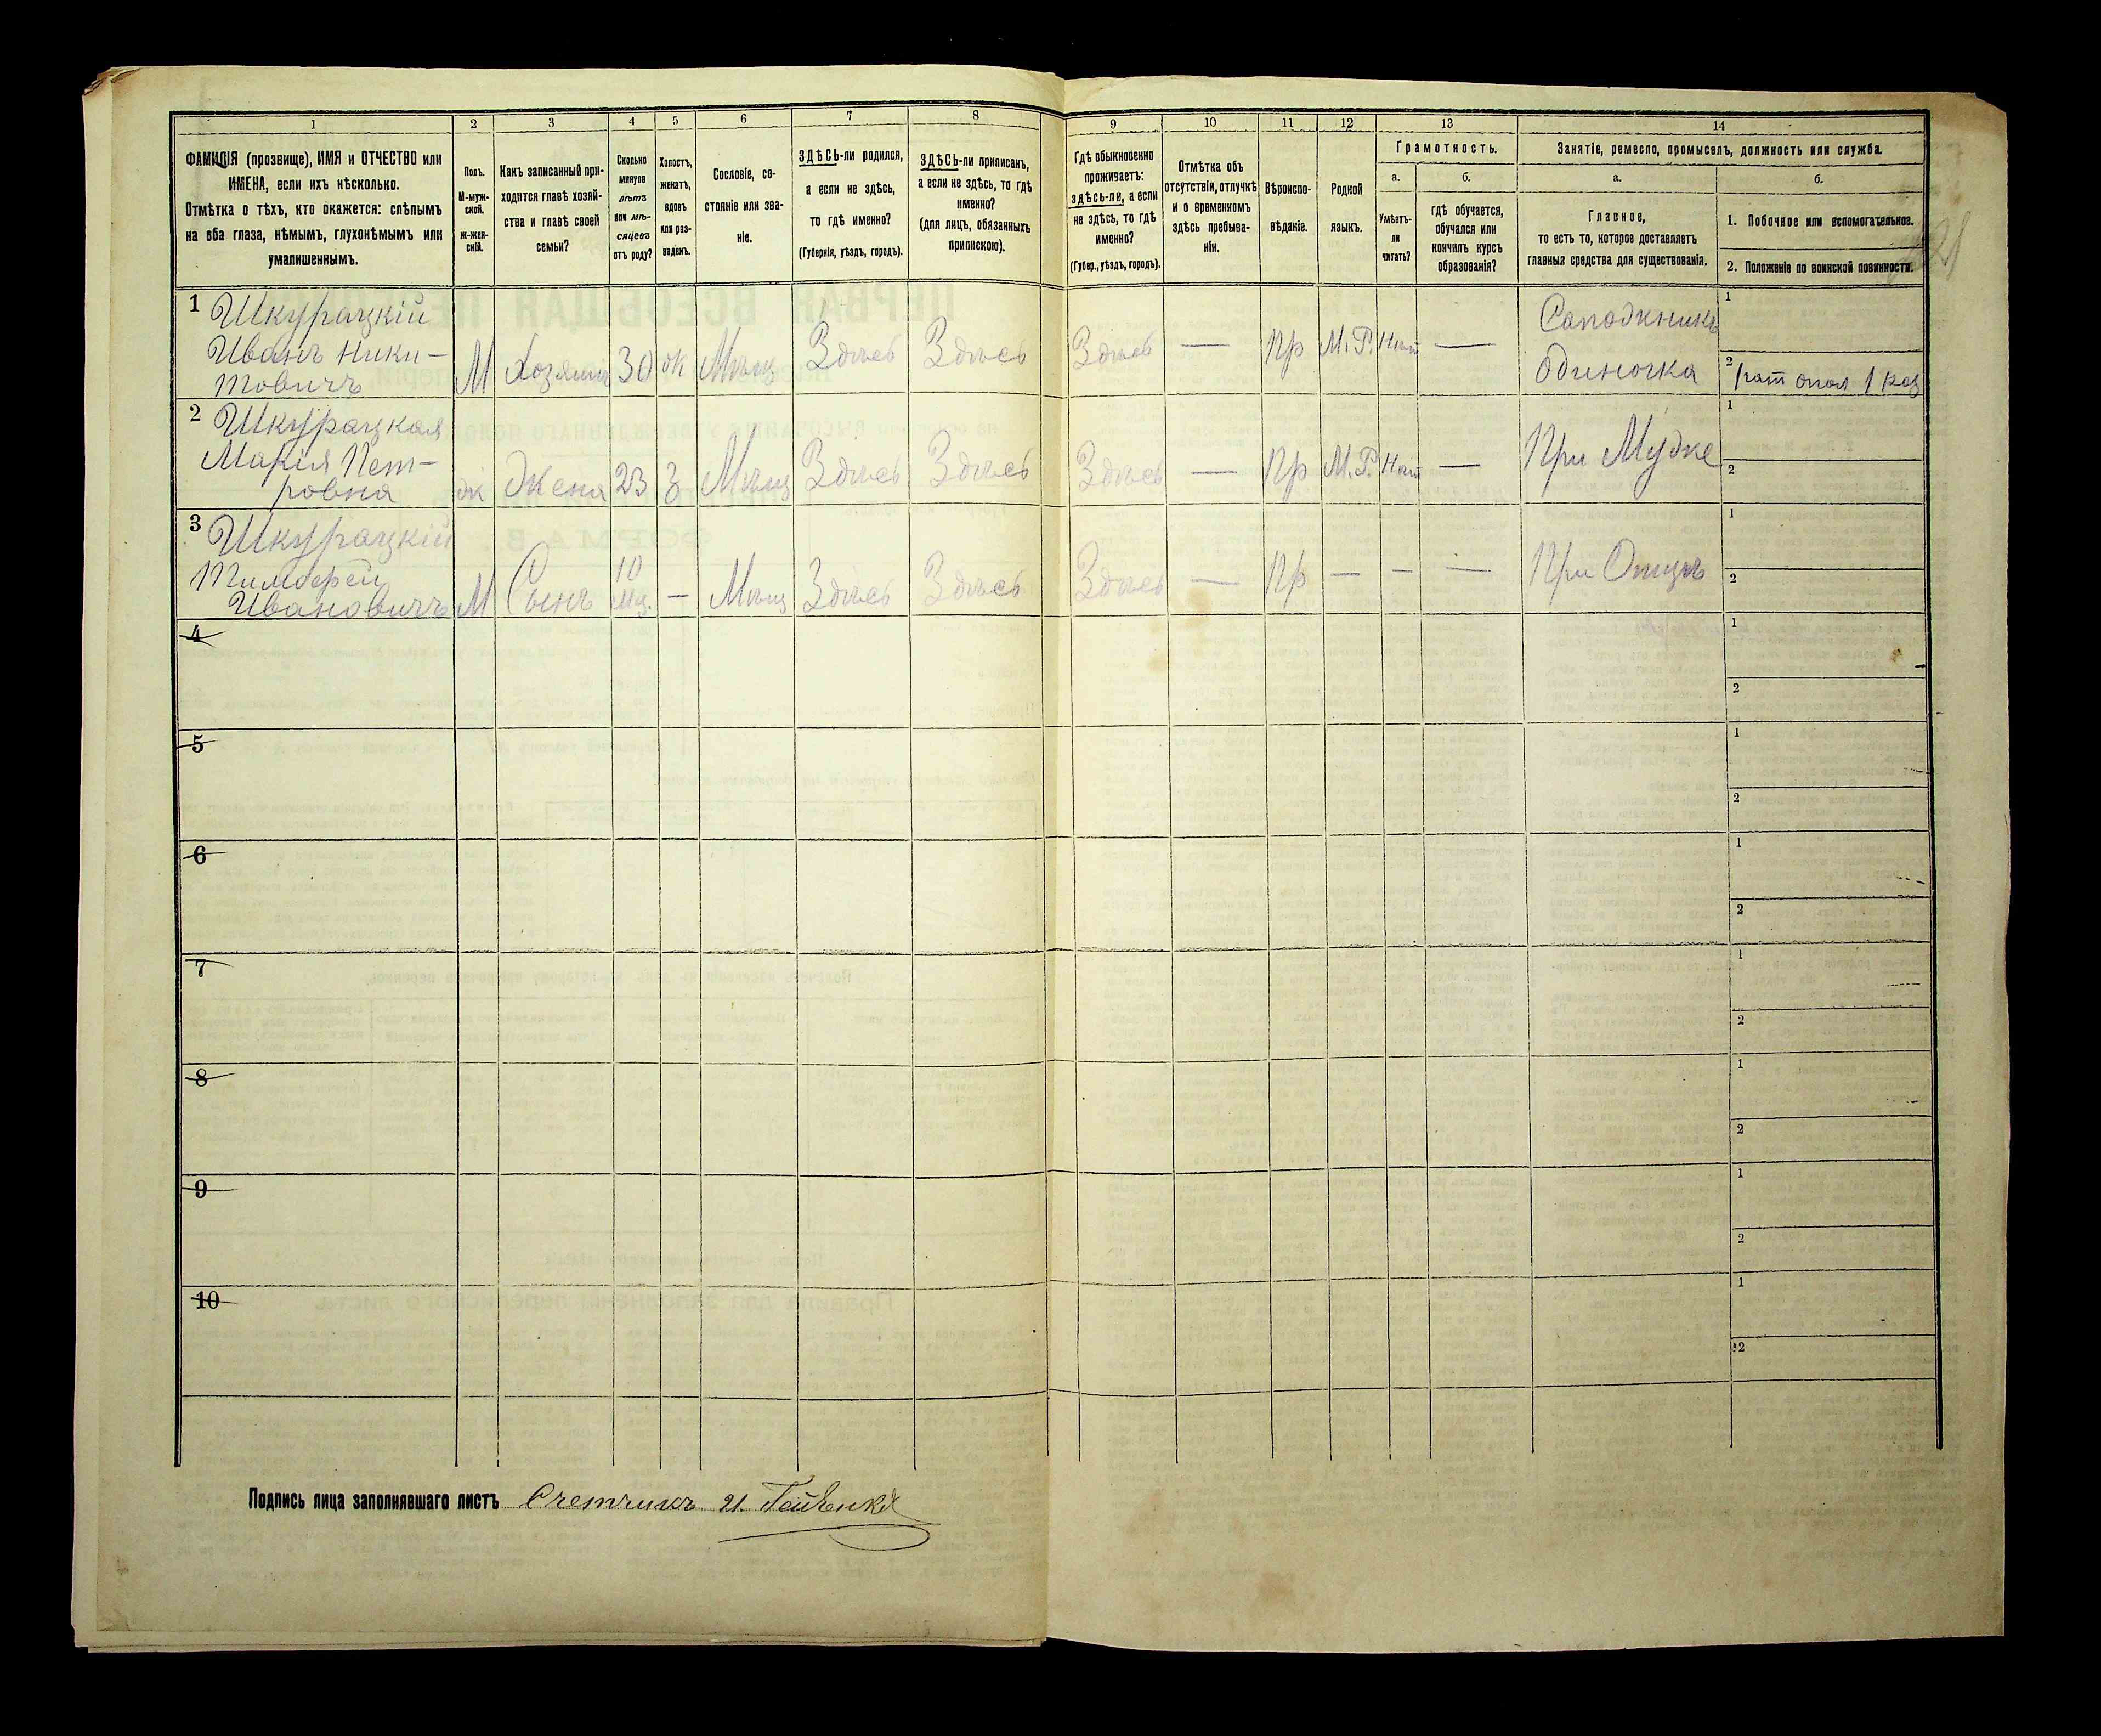 1
2
3
4
5
6
7
8
9
10
11
12
13
14
ФАМИЛІЯ (прозвище), ИМЯ и ОТЧЕСТВО или
ИМЕНА, если ихъ нѣсколько.
Отмѣтка о тѣхъ, кто окажется: слѣпымъ
на оба глаза, нѣмымъ, глухонѣмымъ или
умалишеннымъ.
Полъ.
М-муж-
ской.
Ж-жен-
скій.
Какъ записанный при-
ходится главѣ хозяй-
ства и главѣ своей
семьи?
Сколько
минуло
лѣтъ
или мѣ-
сяцевъ
отъ роду?
Холостъ,
женатъ,
вдовъ
или раз-
веденъ.
Сословіе, со-
стояніе или зва-
ніе.
ЗДѢСЬ-ли родился,
а если не здѣсь,
то гдѣ именно?
(Губернія, уѣздъ, городъ).
ЗДѢСЬ-ли приписанъ,
а если не здѣсь, то гдѣ
именно?
(для лицъ, обязанныхъ
припискою).
Гдѣ обыкновенно
проживаетъ:
здѣсь-ли, а если
не здѣсь, то гдѣ
именно?
(Губер., уѣздъ, городъ).
Отмѣтка объ
отсутствіи, отлучкѣ
и о временномъ
здѣсь пребыва-
ніи.
Вѣроиспо-
вѣданіе.
Родной
языкъ.
Грамотность.
а.
Умѣетъ-
ли
читать?
б.
гдѣ обучается,
обучался или
кончилъ курсъ
образованія?
Занятіе, ремесло, промыселъ, должность или служба.
а.
Главное,
то есть то, которое доставляетъ
главныя средства для существованія.
б.
1. Побочное или вспомогательное.
2. Положеніе по воинской повинности.
1
Шкурацкій
Иванъ Ники-
товичъ
М
Хозяинъ
30
ж
Мѣщ
Здѣсь
Здѣсь
Здѣсь
—
Пр
М.Р.
Нѣт
—
Сапожникъ
одиночка
1
2 рат опол 1 раз
2
Шкурацкая
Марія Пет-
ровна
ж
Жена
23
З
Мѣщ
Здѣсь
Здѣсь
Здѣсь
—
Пр
М.Р.
Нѣт
—
При Мужѣ
1
2
3
Шкурацкій
Тимофей
Ивановичъ
М
Сынъ
10
Мц.
—
Мѣщ
Здѣсь
Здѣсь
Здѣсь
—
Пр
—
—
—
При Отцѣ
1
2
4
1
2
5
1
2
6
1
2
7
1
2
8
1
2
9
1
2
10
1
2
Подпись лица заполнявшаго листъ Счетчикъ И.